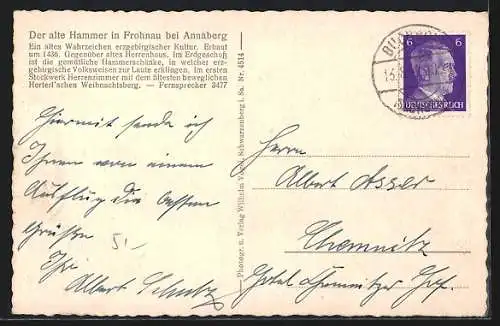 Der alte Hammer in Frohnau bei Annaberg
Ein altes Wahrzeichen erzgebirgischer Kultur. Erbaut
um 1436. Gegenüber altes Herrenhaus. Im Erdgeschoß
ist die gemütliche Hammerschänke, in welcher erz-
gebirgische Volksweisen zur Laute erklingen. Im ersten
Stockwerk Herrenzimmer mit dem ältesten beweglichen
Herterl'schen Weihnachtsberg. — Fernsprecher 3477
Hiermit sende ich
Ihnen von einem
Ausflug die besten
Grüße
Ihr
Albert Schulz
5,-
Photogr. u. Verlag Wilhelm Vogel, Schwarzenberg i. Sa. Nr. 4514
6 6
DEUTSCHES REICH
Herrn
Albert Asser
Chemnitz
Hotel Chemnitzer Hof.